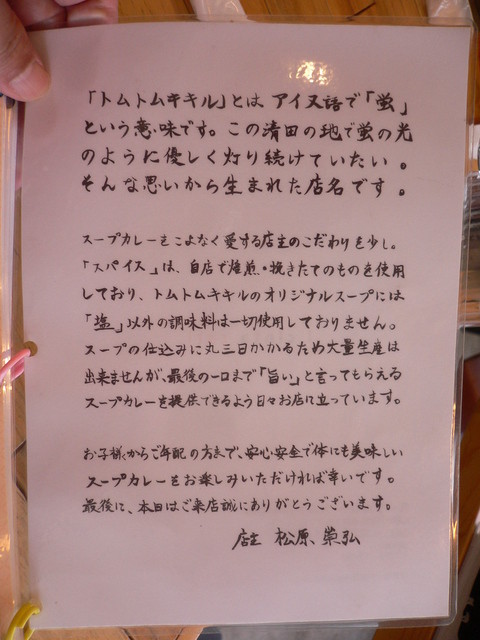 「トムトムキキル」とは アイヌ語で「蛍」
という意味です。この清田の地で蛍の光
のように優しく灯り続けていたい。
そんな思いから生まれた店名です。
スープカレーをこよなく愛する店主のこだわりを少し。
「スパイス」は、自店で焙煎・挽きたてのものを使用
しており、トムトムキキルのオリジナルスープには
「塩」以外の調味料は一切使用しておりません。
スープの仕込みに丸三日かかるため大量生産は
出来ませんが、最後の一口まで「旨い」と言ってもらえる
スープカレーを提供できるよう日々お店に立っています。
お子様からご年配の方まで、安心安全で体にも美味しい
スープカレーをお楽しみいただければ幸いです。
最後に、本日はご来店誠にありがとうございます。
店主 松原、榮弘